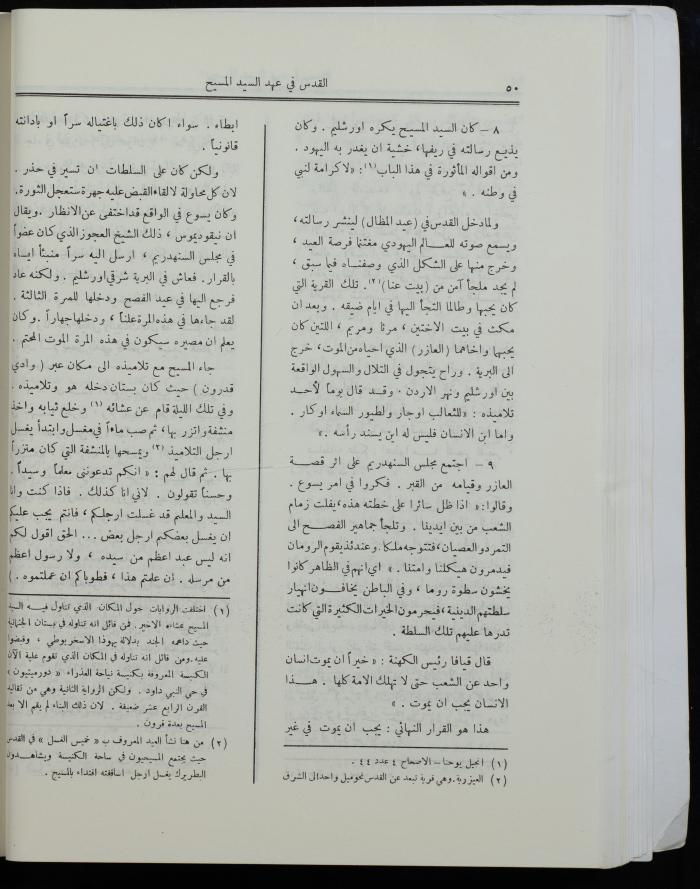 ٥٠
القدس في عهد السيد المسيح
٨ – كان السيد المسيح يكره اورشليم . وكان
يذيع رسالته في ريفها، خشية ان يغدر به اليهود .
ومن اقواله المأثورة في هذا الباب(١): «لاكرامة لنبي
في وطنه . »
ولما دخل القدس في (عيد المظال) لينشر رسالته،
ويسمع صوته للعالم اليهودي مغتنما فرصة العيد ،
وخرج منها على الشكل الذي وصفناه فيما سبق ،
لم يجد ملجأ آمن من (بيت عنيا)(٢). تلك القرية التي
كان يحبها وطالما التجأ اليها في ايام ضيقه . وبعد ان
مكث في بيت الاختين ، مرثا ومريم ، اللتين كان
يحبهما واخاهما (العازر) الذي احياه من الموت، خرج
الى البرية . وراح يتجول في التلال والسهول الواقعة
بين اورشليم ونهر الاردن . وقد قال يوماً لأحد
تلاميذه : «للثعالب اوجار ولطيور السماء اوكار .
واما ابن الانسان فليس له اين يسند رأسه .»
٩ – اجتمع مجلس السنهدريم على اثر قصة
العازر وقيامه من القبر . فكروا في امر يسوع .
وقالوا: «اذا ظل سائرا على خطته هذه، يفلت زمام
الشعب من بين ايدينا . وتلجأ جماهير الفصح الى
التمرد والعصيان، فتتوجه ملكا. وعندئذ يقوم الرومان
فيدمرون هيكلنا وامتنا . » اي انهم في الظاهر كانوا
يخشون سطوة روما ، وفي الباطن يخافون انهيار
سلطتهم الدينية، فيحرمون الخيرات الكثيرة التي كانت
تدرها عليهم تلك السلطة .
قال قيافا رئيس الكهنة : « خير أن يموت انسان
واحد عن الشعب حتى لا تهلك الامة كلها . هذا
الانسان يجب ان يموت . »
هذا هو القرار النهائي : يجب ان يموت في غير
(١) انجيل يوحنا – الاصحاح ٤ عدد ٤٤ .
(٢) العيزرية. وهي قرية تبعد عن القدس نحو ميل واحد الى الشرق
ابطاء . سواء اكان ذلك باغتياله سراً او بادانته
قانونياً .
ولكن كان على السلطات ان تسير في حذر .
لان كل محاولة لالقاء القبض عليه جهرة ستعجل الثورة.
وكان يسوع في الواقع قد اختفى عن الانظار . ويقال
ان نيقوديموس ، ذلك الشيخ العجوز الذي كان عضواً
في مجلس السنهدريم ، ارسل اليه سراً منبئاً اياه
بالقرار . فعاش في البرية شرقي اورشليم . ولكنه عاد
فرجع اليها في عيد الفصح ودخلها للمرة الثالثة .
لقد جاءها في هذه المرة علناً ، ودخلها جهاراً . وكان
يعلم ان مصيره سيكون في هذه المرة الموت المحتم .
جاء المسيح مع تلاميذه الى مكان عبر ( وادي
قدرون ) حيث كان بستان دخله هو وتلاميذه .
وفي تلك الليلة قام عن عشائه (١) وخلع ثيابه واخذ
منشفة واتزر بها ، ثم صب ماءاً في مغسل وابتدأ يغسل
ارجل التلاميذ (٢) ويمسحها بالمنشفة التي كان متزراً
بها . ثم قال لهم : « انكم تدعونني معلماً وسيداً .
وحسناً تقولون . لاني انا كذلك . فاذا كنت وانا
السيد والمعلم قد غسلت ارجلكم، فانتم يجب عليكم
ان يغسل بعضكم ارجل بعض ... الحق اقول لكم
انه ليس عبد اعظم من سيده ، ولا رسول اعظم
من مرسله . ان علمتم هذا ، فطوباكم ان عملتموه . )
(١) اختلفت الروايات حول المكان الذي تناول فيه السيد
المسيح عشاءه الاخير . فمن قائل انه تناوله في بستان الجثمانية
حيث داهمه الجند بدلالة يهوذا الاسخريوطي ، وقبضوا
عليه. ومن قائل انه تناوله في المكان الذي تقوم عليه الآن
الكنيسة المعروفة بكنيسة نياحة العذراء « دورميتيون »
في حي النبي داود . ولكن الرواية الثانية وهي من تقاليد
القرن الرابع عشر ضعيفة . لان ذلك البناء لم يقم الا بعد
المسيح بعدة قرون .
(٢) من هنا نشأ العيد المعروف ب « خميس الغسل » في القدس
حيث يجتمع المسيحيون في ساحة الكنيسة ويشاهدون
البطريرك يغسل ارجل اساقفته اقتداء بالمسيح .